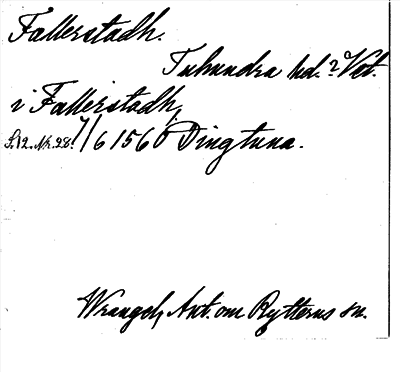 Fallerstadh.
Tuhundra hd. ? Vet.
i Fallerstadh,
S. 12. Nr. 28. 7/6 1566 Dingtuna.
Wrangel, Ant. om Rytterns sn.